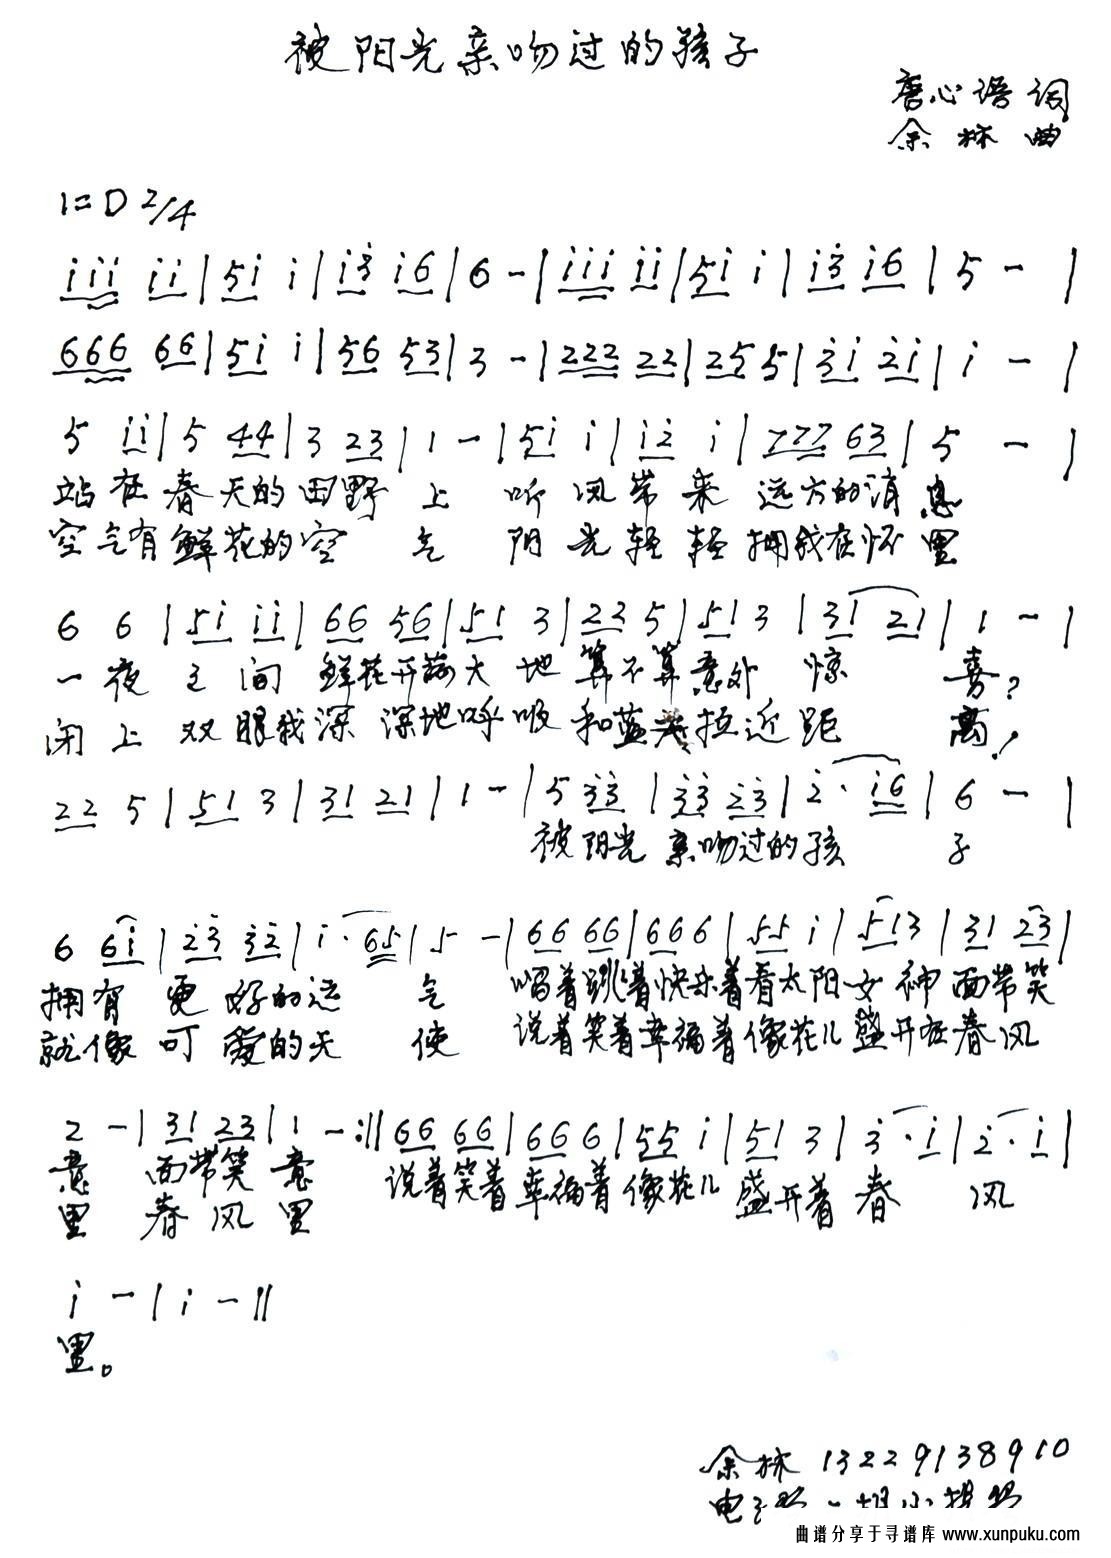 被阳光亲吻过的孩子
唐心语 词
余林 曲
1=D 2/4
i i i i i | 5 i i | i 3̇ i 6 | 6 - | i i i i i | 5 i i | i 3̇ i 6 | 5 - |
6 6 6 6 6 | 5 i i | 5 6 5 3 | 3 - | 2 2 2 2 2 | 2 5 5 | 3̇ i 2̇ i | i - |
5 i i | 5 4 4 | 3 2 3 | 1 - | 5 i i | i 2̇ i | 7 7 7 6 3 | 5 - |
站在春天的田野上 听风带来远方的消息
空气有鲜花的空气 阳光轻轻拥我在怀里
6 6 | 5 i i i | 6 6 5 6 | 5 1 3 | 2 2 5 | 5 1 3 | 3 1 2 1 | 1 - |
一夜之间鲜花开满大地算不算意外惊喜?
闭上双眼我深深地呼吸和蓝天拉近距离!
2 2 5 | 5 1 3 | 3 1 2 1 | 1 - | 5 3̇ 3̇ | 3̇ 3̇ 2̇ 3̇ | 2̇ · i 6 | 6 - |
被阳光亲吻过的孩子
6 6 i | 2̇ 3̇ 3̇ 2̇ | i · 6 5 | 5 - | 6 6 6 6 | 6 6 6 | 5 5 i | 5 1 3 | 3 1 2 3 |
拥有更好的运气 唱着跳着快乐着看太阳女神面带笑
就像可爱的天使 说着笑着幸福着像花儿盛开在春风
2 - | 3 1 2 3 | 1 - :|| 6 6 6 6 | 6 6 6 | 5 5 i | 5 1 3 | 3̇ · i | 2̇ · i |
意 面带笑意 说着笑着幸福着像花儿盛开着春风
里 春风里
i - | i - ||
里。
余林 13229138910
曲谱分享于寻谱库 www.xunpuku.com